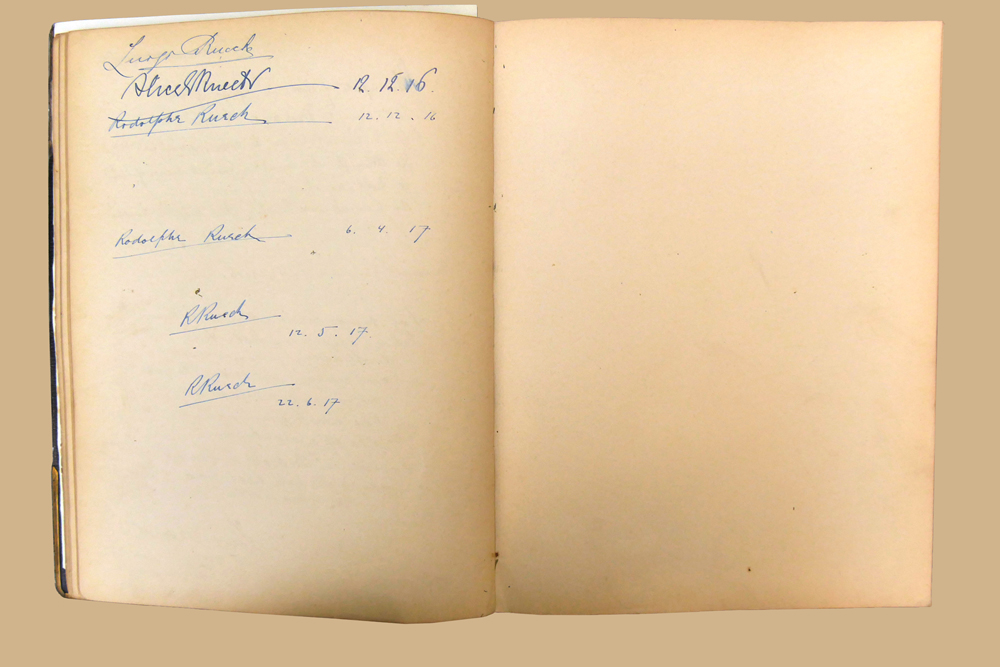 Rusch
Alice Rusch 12. 12. 16.
Rodolphe Rusch 12. 12. 16
Rodolphe Rusch 6. 4. 17
R Rusch
12. 5. 17.
R Rusch
22. 6. 17